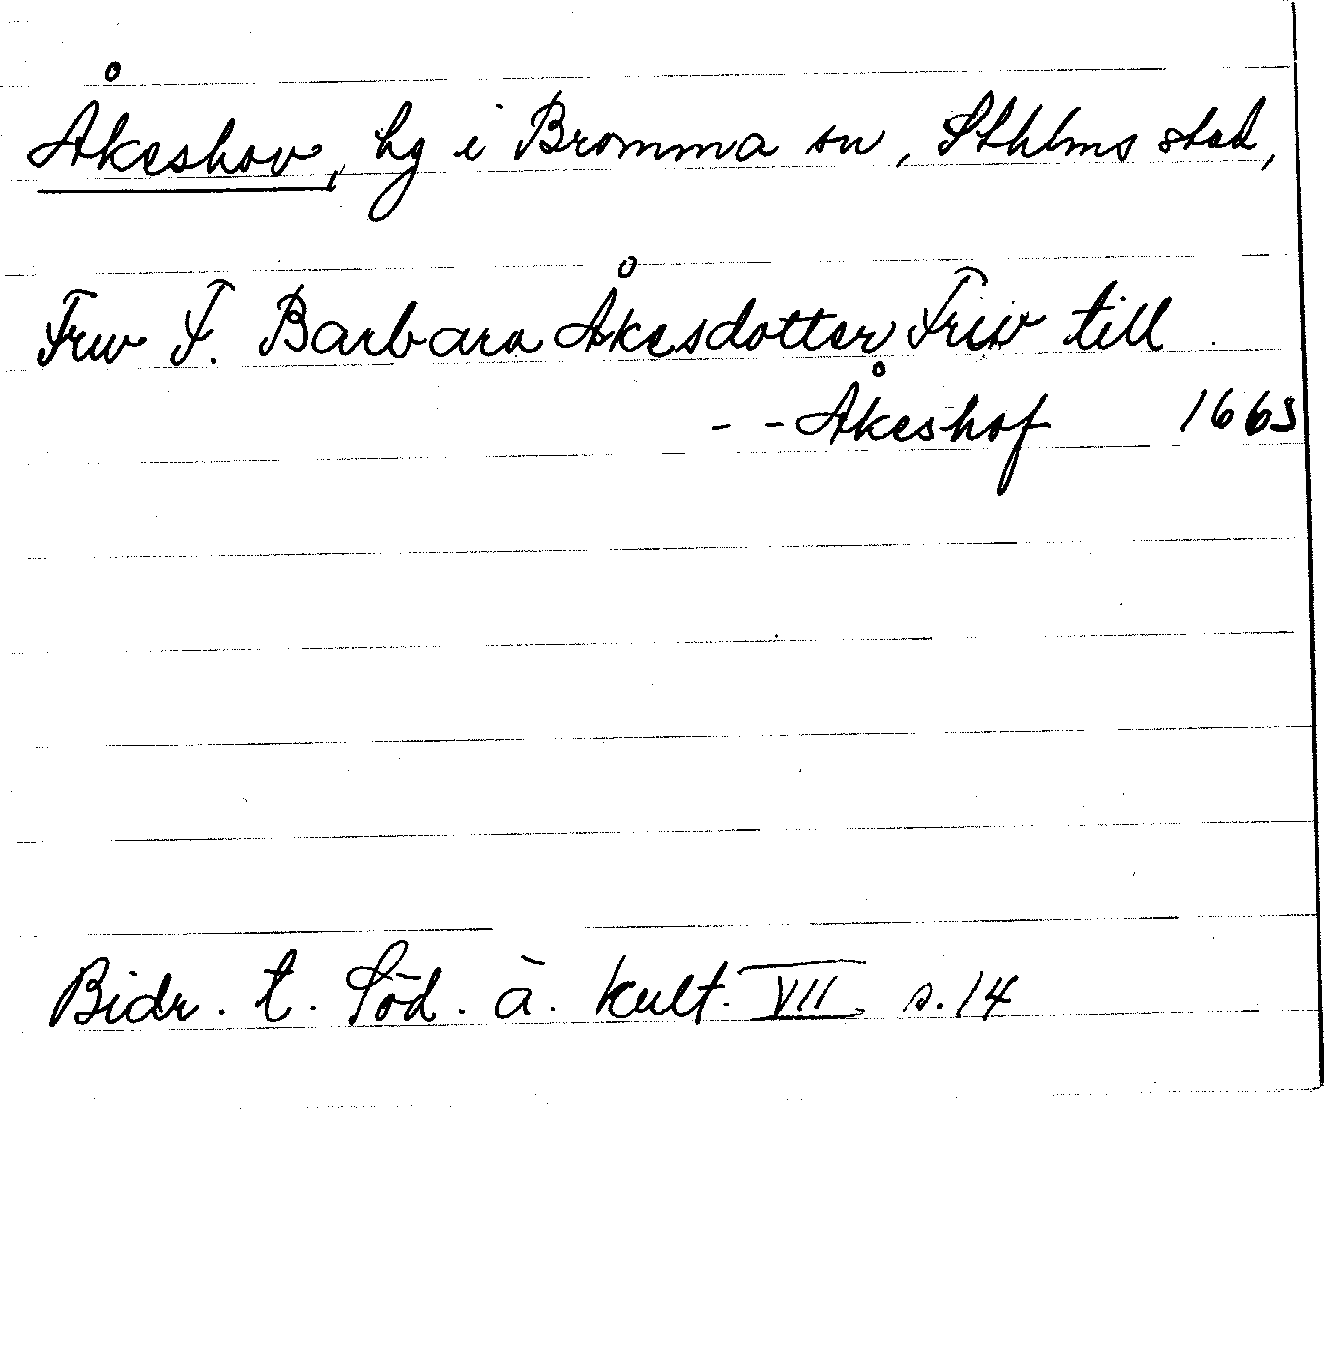 Åkeshov, hg i Bromma sn, Sthlms stad,
Frw F. Barbara Åkesdotter Friv till
- - Åkeshof 1663
Bidr. t. Söd. ä. kult. VII s. 14